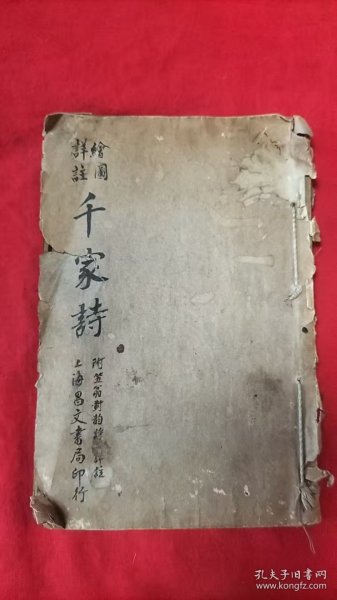 繪圖
詳註
千家詩
附笠翁對韵詳註
上海昌文書局印行
孔夫子旧书网
www.kongfz.com